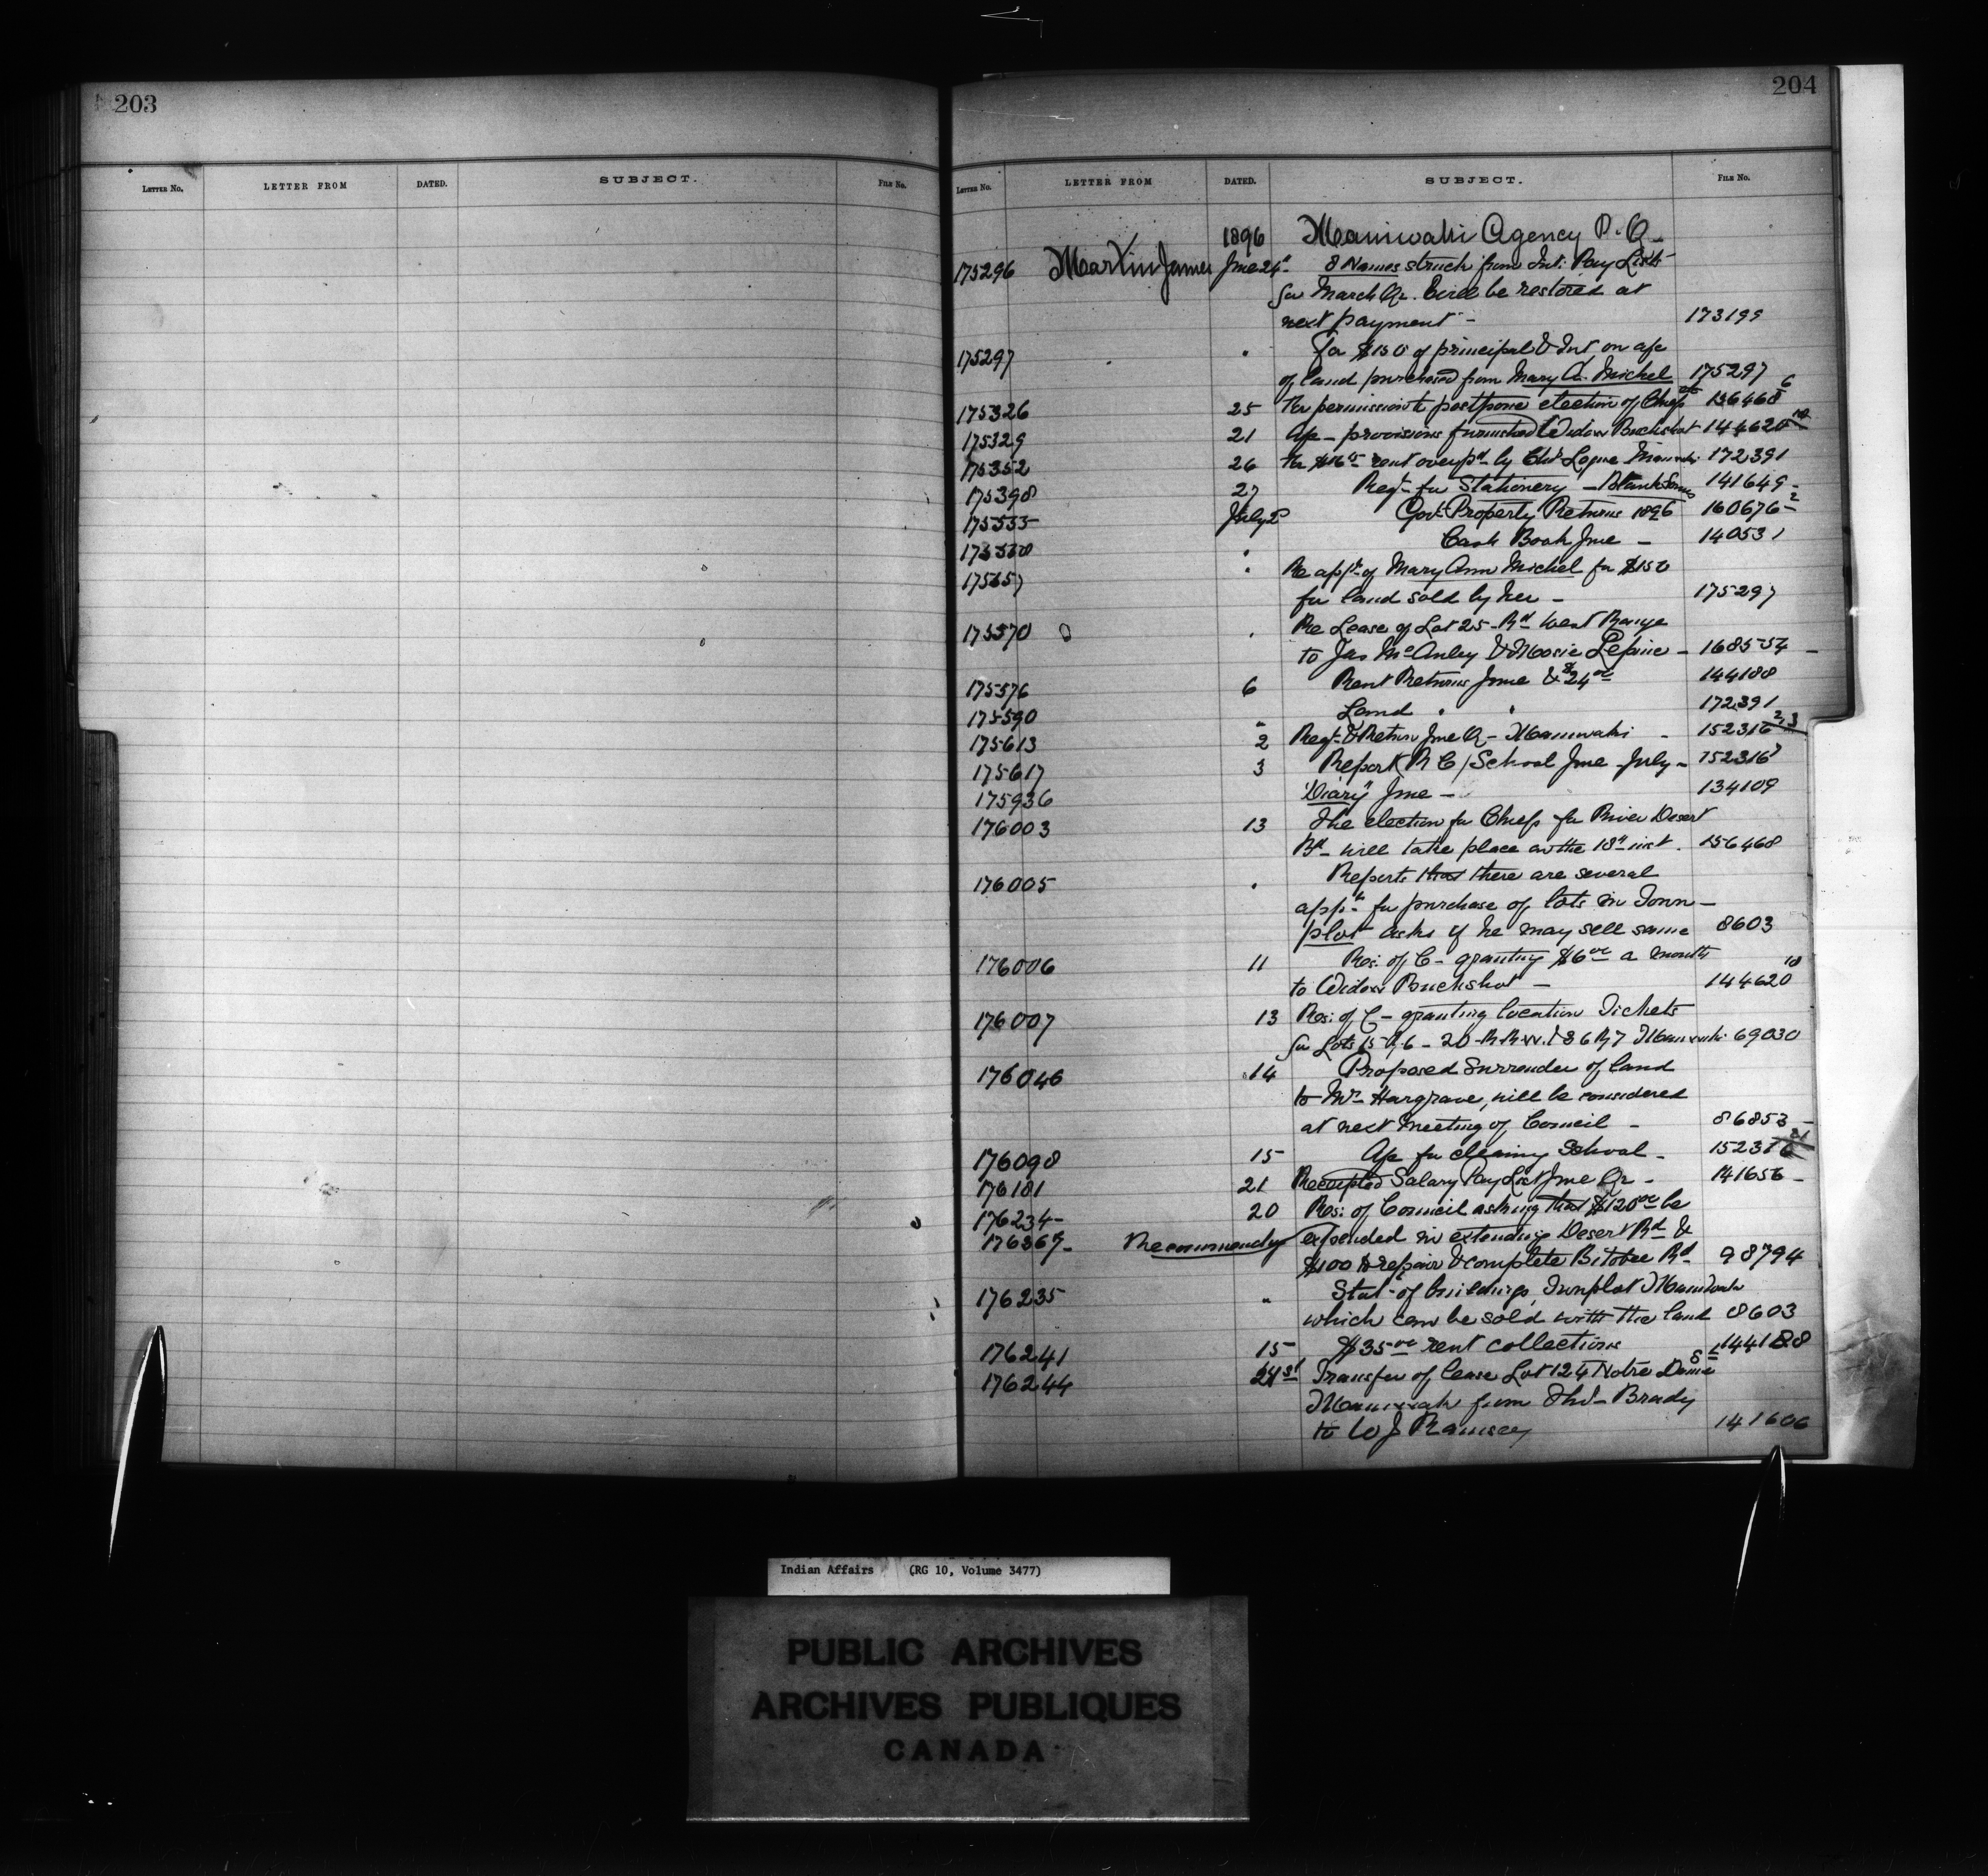 203
LETTER NO. LETTER FROM DATED. SUBJECT. FILE NO.
204
LETTER NO. LETTER FROM DATED. SUBJECT. FILE NO.
1896 Maniwaki Agency P.Q.
175296 Martin James June 24" 8 Names struck from Int: Pay Lists
for March Qr. will be restored at
next payment - 173199
175297 " For $150 of principal & Int on a/c
of land purchased from Mary A. Michel 175297
175326 25 Re permission to postpone election of Chiefs 156468 6
175329 21 a/c - provisions furnished Widow Buckshot 144620 10
175352 26 Re rent overpd by Chs Logue Maniwaki 172391
175398 27 Reqt for Stationery - Blank Forms 141649 -
175535 July 2 Govt Property Returns 1896 160676 - 2
175538 " Cash Book June - 140531
175557 " Re appn of Mary Ann Michel for $150
for land sold by her - 175297
175570 " Re Lease of Lot 25 - Rd West Range
to Jas McAuley & Mosie Lepine - 168554 -
175576 6 Rent Returns June & $24 00 144188
175590 " Land " " 172391
175613 2 Reqt & Return June Qr - Maniwaki - 152316 2,3
175617 3 Report (R C) School June - July - 152316
175936 "Diary" June - 134109
176003 13 The election for Chiefs for River Desert
Bd - will take place on the 18" inst. 156468
176005 " Reports that there are several
appns for purchase of lots in Town -
plot asks if he may sell same 8603
176006 11 Res: of C - granting $6 00 a month
to Widow Buckshot - 144620 10
176007 13 Res: of C - granting location Tickets
for Lots Maniwaki 69030
176046 14 Proposed Surrender of land
to Mr Hargrave, will be considered
at next meeting of Council - 86853 -
176098 15 a/c for cleaning School - 152316 21
176181 21 Receipted Salary Pay List June Qr - 141656 -
176234 - 20 Res: of Council asking that $120 00 be
176367 - Recommends expended in extending Desert Rd &
$100 to repair & complete Bitobee Rd - 98794
176235 " Stat: of buildings, Townplot Maniwaki
which can be sold with the land 8603
176241 15 $35 00 rent collections 144188
176244 21st Transfer of lease Lot 124 Notre Dame St
Maniwaki from Thos - Brady
to W J Ramsay 141606
Indian Affairs (RG 10, Volume 3477)
PUBLIC ARCHIVES
ARCHIVES PUBLIQUES
CANADA